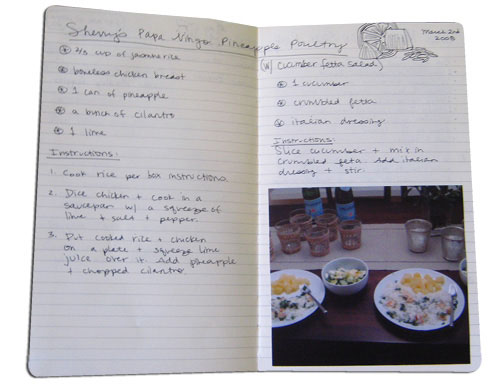 Sherry's Papa Vingo Pineapple Poultry
⅔ cup of jasmine rice
boneless chicken breast
1 can of pineapple
a bunch of cilantro
1 lime
Instructions:
1. Cook rice per box instructions.
2. Dice chicken + cook in a
saucepan w/ a squeeze of
lime + salt + pepper.
3. Put cooked rice + chicken
on a plate + squeeze lime
juice over it. Add pineapple
+ chopped cilantro.
March 2nd
2008
(w/ cucumber fetta salad)
1 cucumber
crumbled fetta
italian dressing
Instructions:
Slice cucumber + mix in
crumbled feta. Add italian
dressing + stir.